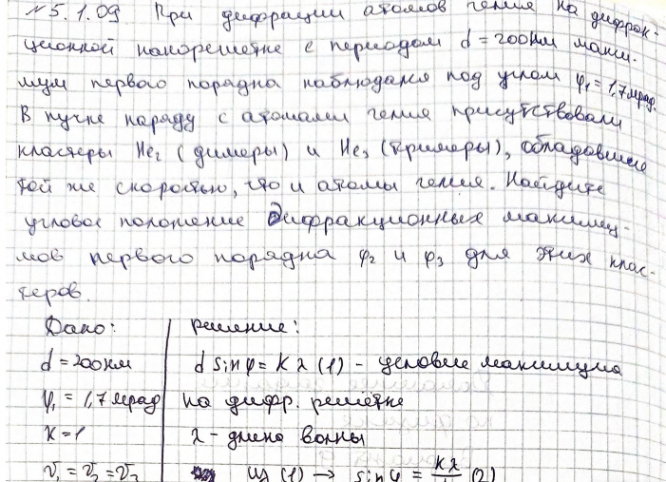 №5.1.09. При дифракции атомов гелия на дифрак-
ционной нанорешетке с периодом d = 200нм макси-
мум первого порядка наблюдался под углом φ₁ = 1,7 мрад.
В пучке наряду с атомами гелия присутствовали
кластеры He₂ (димеры) и He₃ (тримеры), обладавшие
той же скоростью, что и атомы гелия. Найдите
угловое положение дифракционных максиму-
мов первого порядка φ₂ и φ₃ для этих клас-
теров.
Дано: Решение:
d = 200нм d sinφ = kλ (1) - условие максимума
φ₁ = 1,7 мрад на дифр. решетке
k = 1 λ - длина волны
v₁ = v₂ = v₃ Из (1) → sinφ = kλ/d (2)